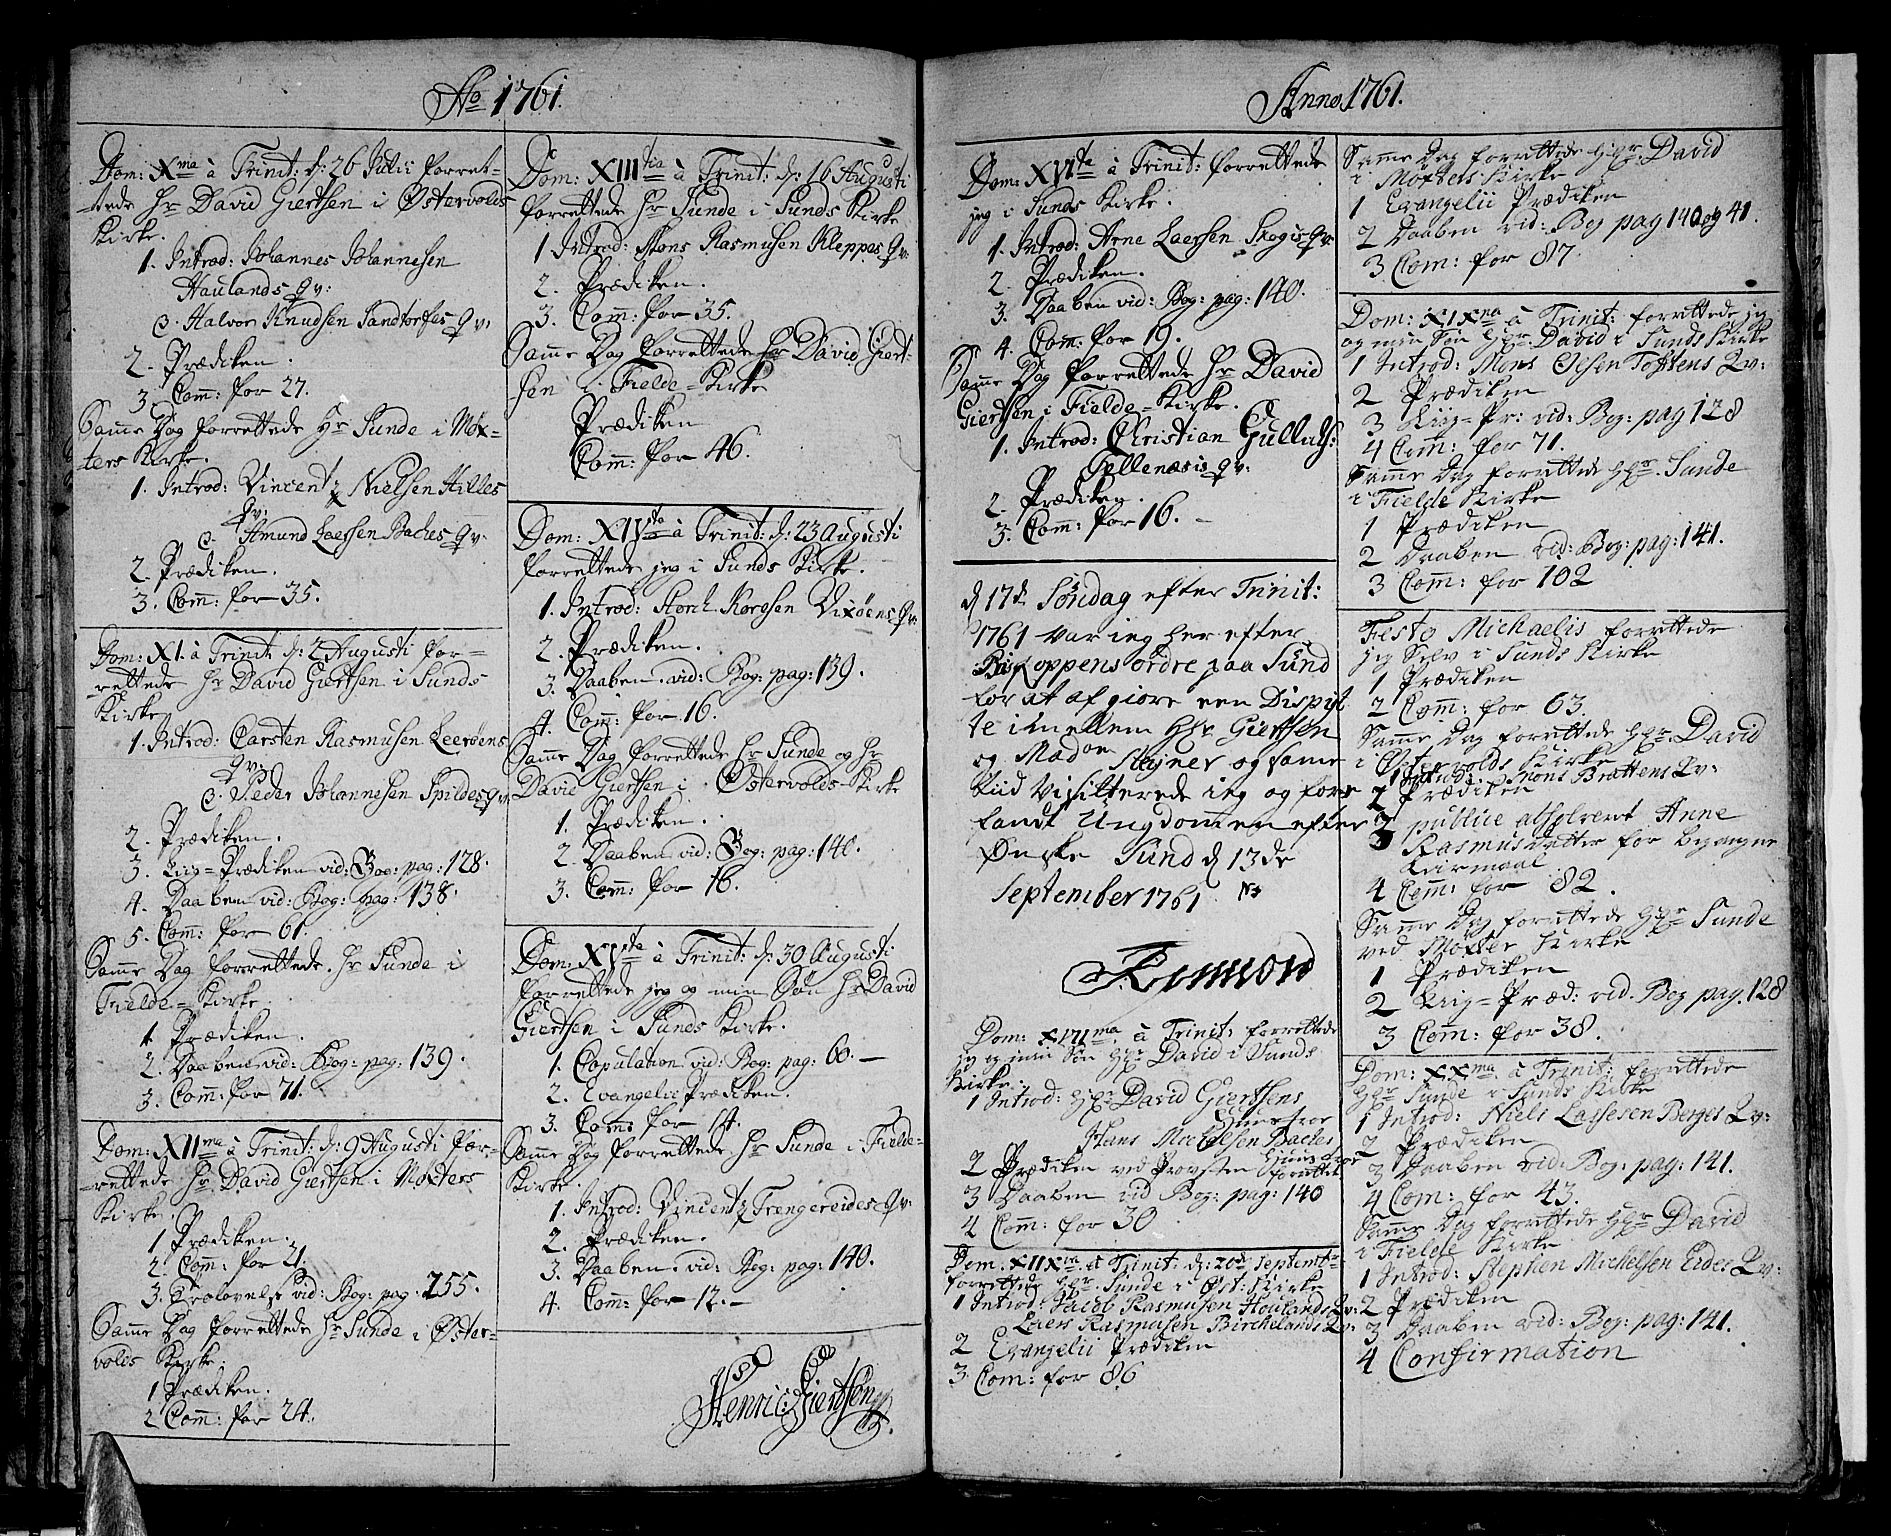 Ao 1761.
Dom: Xma à Trinit: d: 26 Julii forret-
-tede Hr David Giertsen i Østervolds
Kirke.
1. Introd: Johannes Johannesen
Haulands Qv:
Halvor Knudsen Sandtorfes Qv:
2. Prædiken.
3. Com: for 27.
Samme Dag forrettede Hr Sunde i Møx-
ters Kirke.
1. Introd: Vincentz Nielsen Hilles
Qv:
Amund Laersen Baches Qv:
2. Prædiken.
3. Com: for 35.
Dom: XI. à Trinit d: 2 Augusti for-
rettede Hr David Giertsen i Sunds
Kirke
1. Introd: Carsten Rasmusen Leerøens
Qv:
Peder Johannesen Spildes Qv:
2. Prædiken.
3. Liig-Prædiken vid: Bog: pag: 128.
4. Daaben vid: Bog: pag: 138.
5. Com: for 61.
Samme Dag forrettede Hr Sunde i
Fielde-Kirke.
1. Prædiken.
2. Daaben vid: Bog: pag: 139.
3. Com: for 71.
Dom: XIIma à Trinit: d: 9 Augusti for-
-rettede Hr David Giertsen i Møxters
Kirke.
1 Prædiken.
2. Com: for 21.
3. Trolovelse vid: Bog: pag: 255.
Samme Dag forrettede Hr Sunde i Øster-
volds Kirke.
1 Prædiken.
2 Com: for 24.
Dom: XIIItia à Trinit: d: 16 Augusti
forrettede Hr Sunde i Sunds Kirke
1. Introd: Mons Rasmusen Kleppes Qv:
2. Prædiken.
3. Com: for 35.
Samme Dag forrettede Hr David Giert-
sen i Fielde-Kirke
Prædiken
Com: for 46.
Dom: XIVta à Trinit: d: 23 Augusti
forrettede jeg i Sunds Kirke.
1. Introd: Vixøens Qv:
2. Prædiken.
3. Daaben vid: Bog: pag: 139.
4. Com: for 16.
Samme Dag forrettede Hr Sunde og Hr
David Giertsen i Østervolds-Kirke
1. Prædiken.
2. Daaben vid: Bog: pag: 140.
3. Com: for 16.
Dom: XVta à Trinit: d: 30 Augusti
forrettede jeg og min Søn Hr David
Giertsen i Sunds Kirke.
1. Copulation vid: Bog: pag: 60.—
2. Evangelii Prædiken.
3. Com: for 14.
Samme Dag forrettede Hr Sunde i Fielde-
Kirke.
1. Introd: Vincentz Trengereides Qv:
2. Prædiken.
3. Daaben vid: Bog: pag: 140.
4. Com: for 12.—
Henric: Giertsøn
Anno 1761.
Dom: XVIta à Trinit: forrettede
jeg i Sunds Kirke.
1. Introd: Arne Laersen Skogis Qv:
2. Prædiken.
3. Daaben vid: Bog: pag: 140.
4. Com: for 19.
Samme Dag forrettede Hr David
Giertsen i Fielde-Kirke.
1. Introd: Christian Gullachs:
Tellenæsis Qv:
2. Prædiken.
3. Com: for 16. -
d 17d Søndag efter Trinit:
1761 var ieg her efter
Biskoppens ordre paa Sund
for at af giøre een Dispüt
te imellem Hr Giertsen
og Madon Stejner og samme
tiid Visitterede ieg og fore
fandt Ungdommen efter
Ønske Sund d 13de
September 1761
Dom: XVIIma à Trinit: forrettede
jeg og min Søn Hr David i Sunds
Kirke.
1 Introd: Hr David Giertsens
Hans Michelsen Baches
2 Prædiken ved Provsten
3 Daaben vid Bog: pag: 140
4 Com: for 30
Dom. à Trinit: d: 20d Septembr
forrettede Hr: Sunde i Øst: Kirke
1 Introd: Jacob Rasmusen Houlands Qv:
Laers Rasmusen Birchelands Qv:
2 Evangelii Prædiken
3. Com: for 86
Samme Dag forrettede Hr: David
i Møxters Kirke
1 Evangelii Prædiken
2 Daaben vid: Bog pag 140 og 41.
3 Com: for 87.
Dom: XIXna à Trinit: forrettede jeg
og min Søn Hr. David i Sunds Kirke
1 Introd: Mons Olsen Toftens Qv:
2 Prædiken
3 Liig-Pr: vid: Bog: pag 128
4 Com: for 71.
Samme Dag forrettede Hr. Sunde
i Fielde Kirke
1 Prædiken
2 Daaben vid: Bog: pag: 141.
3 Com: for 102
Festo Michaelis forrettede
jeg Selv i Sunds Kirke
1 Prædiken
2 Com: for 63.
Samme Dag forrettede Hr. David
i Østervolds Kirke
1 Introd: Mons Brattens Qv:
2 Prædiken
3 publice absolveret Anne
Rasmusdatter for begangne
Leirmaal
4 Com: for 82.
Samme Dag forrettede Hr Sunde
ved Møxter Kirke
1 Prædiken
2 Liig-Præd: vid. Bog pag: 128
3 Com: for 38.
Dom: XXma à Trinit: forrettede
Hr Sunde i Sunds Kirke
1 Introd: Niels Lassesen Berges Qv:
2 Prædiken
3 Daaben vid: Bog: pag: 141.
4 Com: for 43.
Samme Dag forrettede Hr David
i Fielde Kirke
1 Introd: Stephen Michelsen Eides Qv:
2 Prædiken
3 Daaben vid: Bog: pag: 141.
4 Confirmation